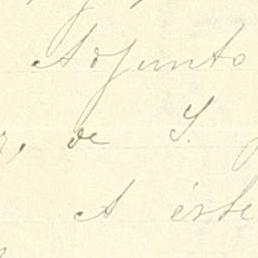 Adjunto
de S.
A éste